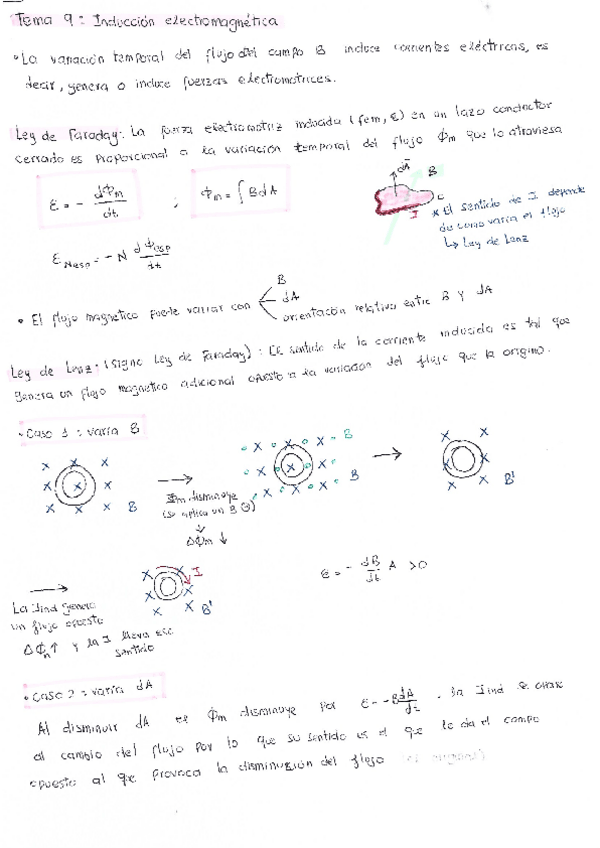 Tema 9: Inducción electromagnética
• La variación temporal del flujo del campo B induce corrientes eléctricas, es
decir, genera o induce fuerzas electromotrices.
Ley de Faraday: La fuerza electromotriz inducida (fem, ε) en un lazo conductor
cerrado es proporcional a la variación temporal del flujo ϕm que lo atraviesa
ε = - dϕm/dt ; ϕm = ∫ B dA
dA B
c
I
* El sentido de I depende
de como varía el flujo
↳ Ley de Lenz
ε = - N dϕesp/dt
• El flujo magnético puede variar con
B
dA
orientación relativa entre B y dA
Ley de Lenz: (signo Ley de Faraday): el sentido de la corriente inducida es tal que
genera un flujo magnético adicional opuesto a la variación del flujo que la originó.
• Caso 1: varía B
x x x
x x x
x x x B
→
ϕm disminuye
(se aplica un B)
↓
Δϕm ↓
B
B
→
x x
x x
x x B'
→
La Iind genera
un flujo opuesto
Δϕm ↑ y la I lleva ese
sentido
I
B'
ε = - dB/dt A > 0
• Caso 2: varía dA
Al disminuir dA el ϕm disminuye por ε = - B dA/dt . La Iind se opone
al cambio del flujo por lo que su sentido es el que le da el campo
opuesto al que provoca la disminución del flujo